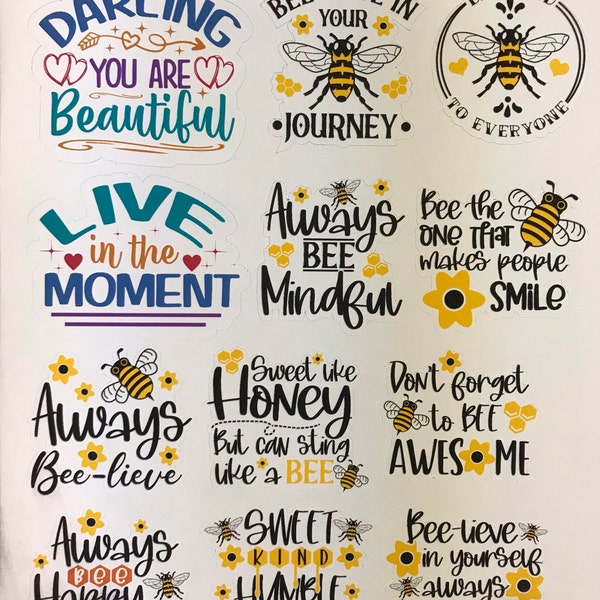 DARLING
YOU ARE
Beautiful
BEE-LIEVE IN
YOUR
JOURNEY
TO EVERYONE
LIVE
in the
MOMENT
Always
BEE
Mindful
Bee the
ONE THAT
makes people
SMILE
Always
Bee-lieve
Sweet like
HONEY
But can sting
like a BEE
Don't forget
to BEE
AWESOME
Always
BEE
Happy
SWEET
KIND
HUMBLE
Bee-lieve
in yourself
always